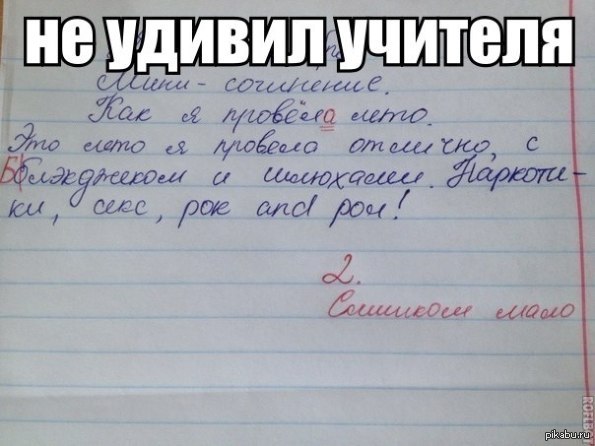 не удивил учителя
Мини - сочинение.
Как я провёла лето.
Это лето я провела отлично, с
блэкджеком и шлюхами. Наркоти-
ки, секс, рок and рол!
2.
Слишком мало
pikabu.ru